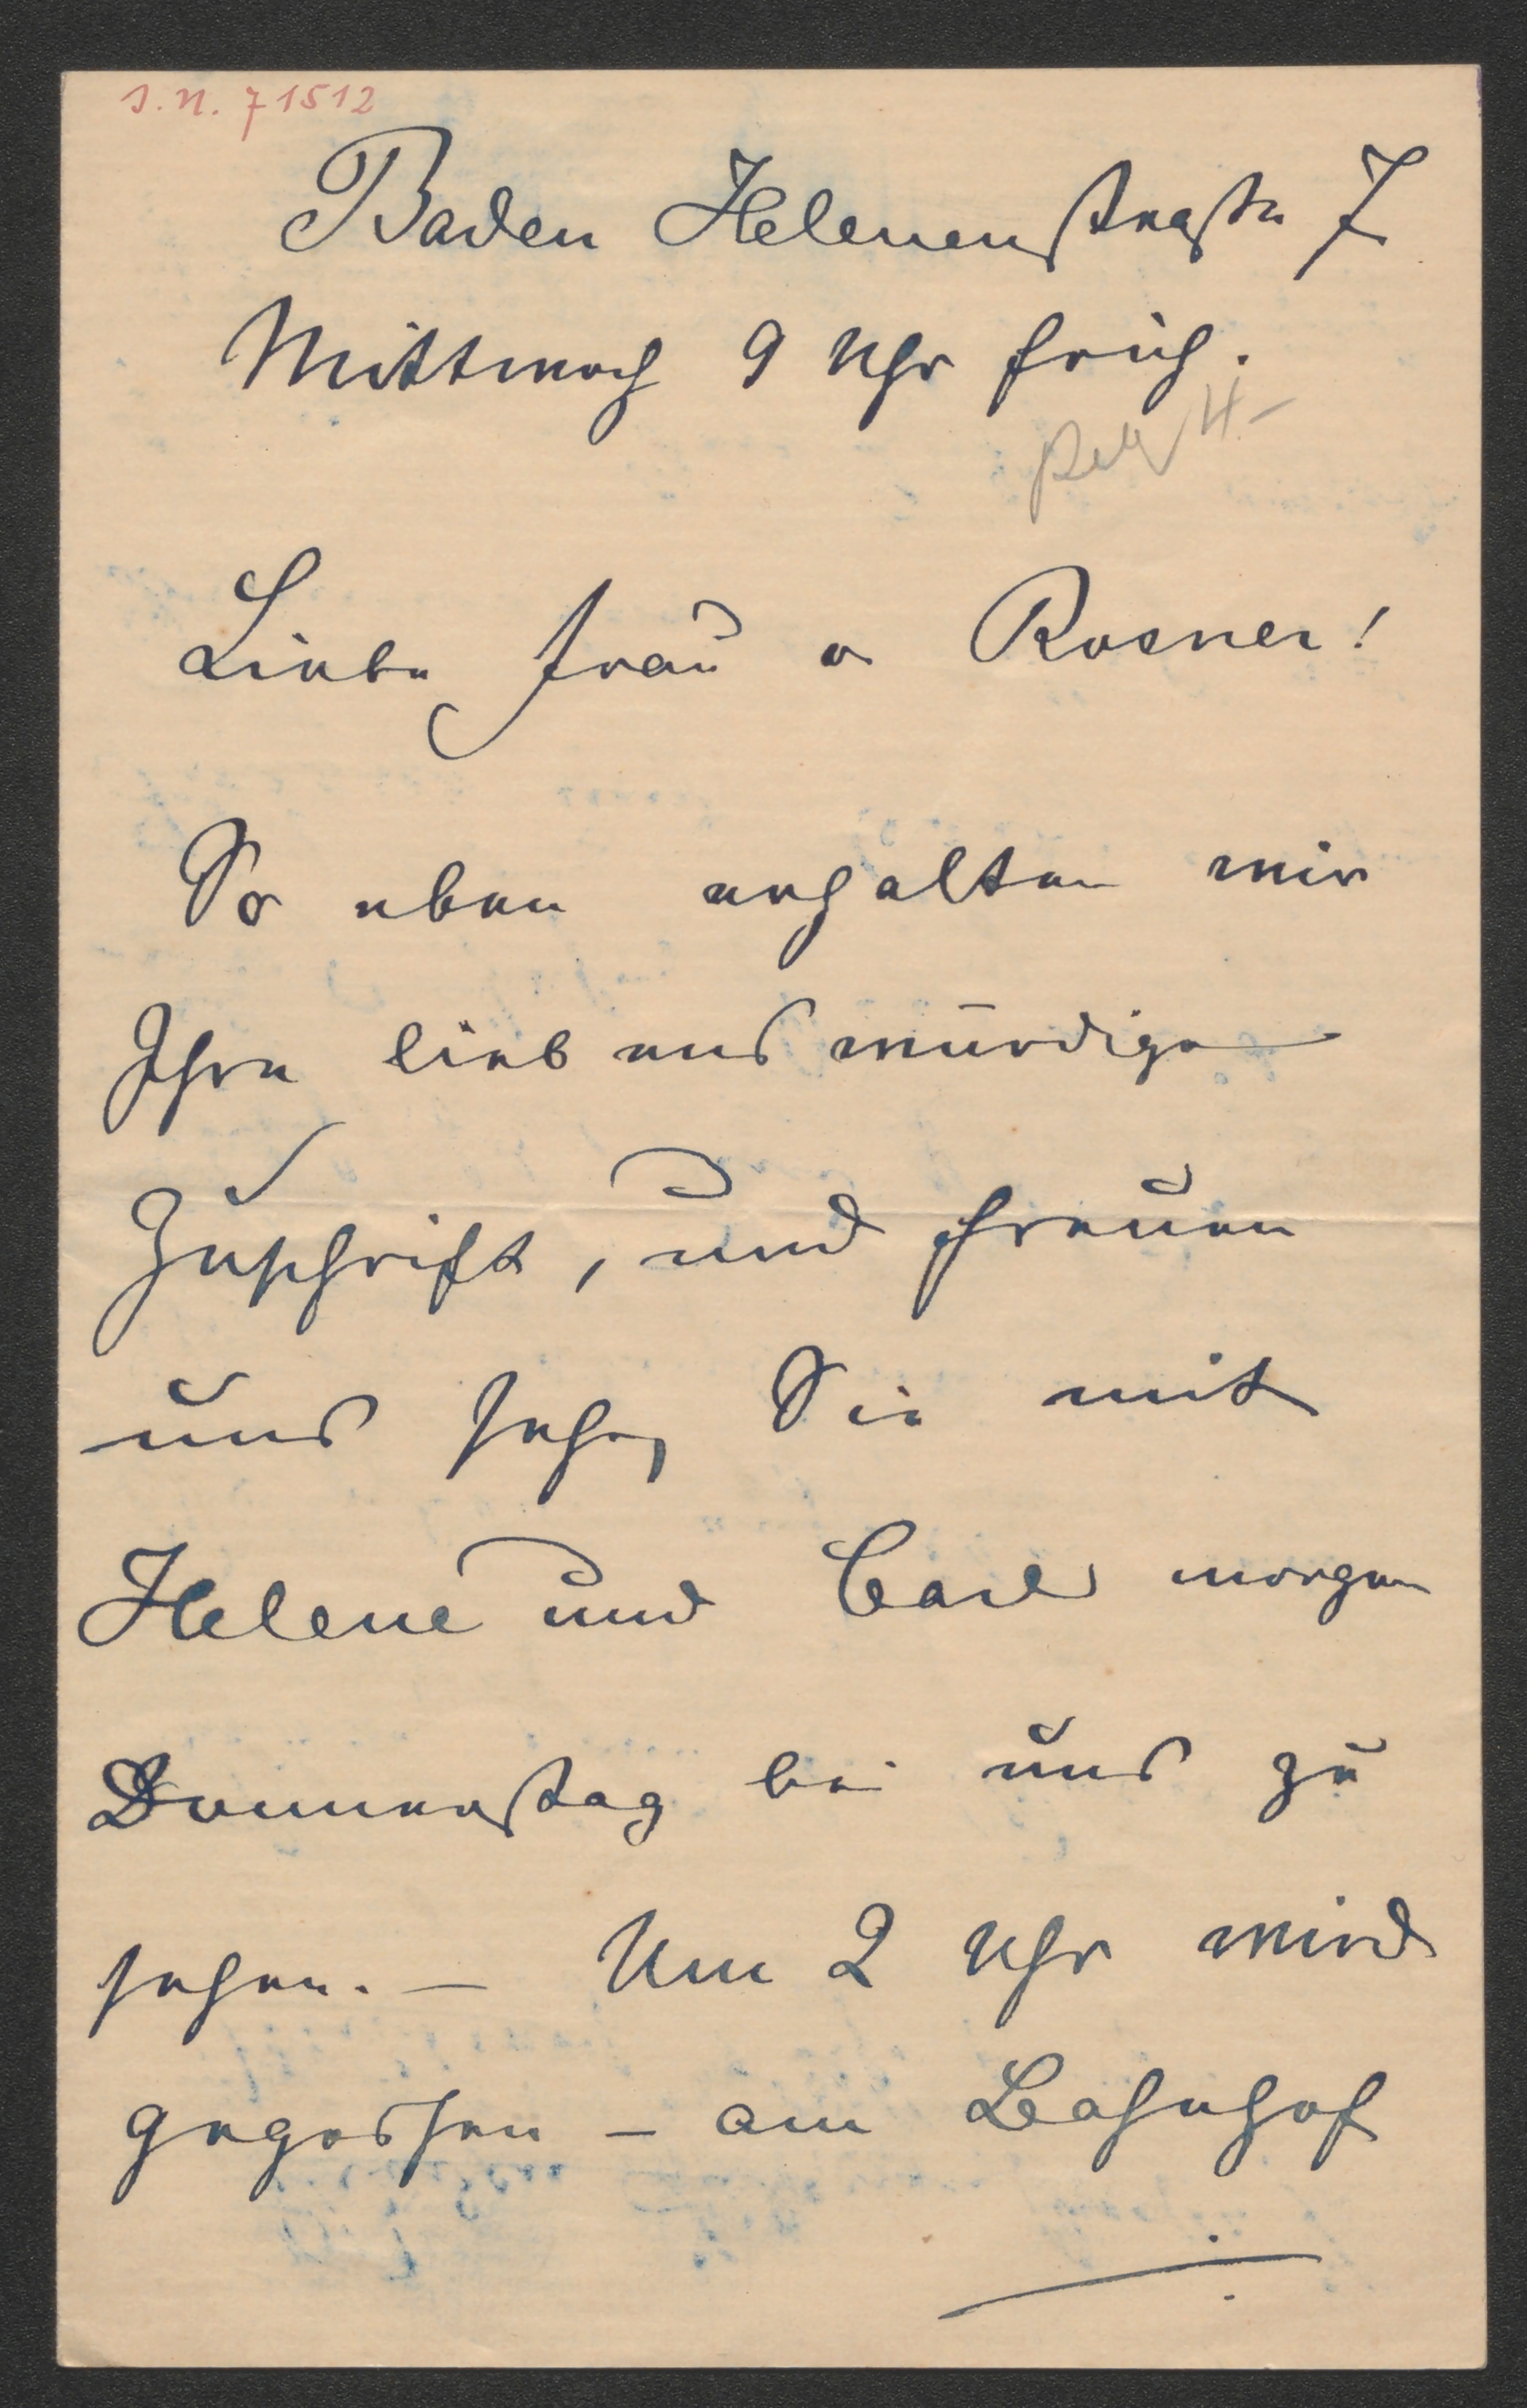 I.N. 71512
Baden Helenenstraße 7
Mittwoch 9 Uhr früh.
Liebe Frau v Rosner!
So eben erhalten wir
Ihre liebenswürdige
Zuschrift, und freuen
uns sehr, Sie mit
Helene und Carl morgen
Donnerstag bei uns zu
sehen. — Um 2 Uhr wird
gegessen — am Bahnhof